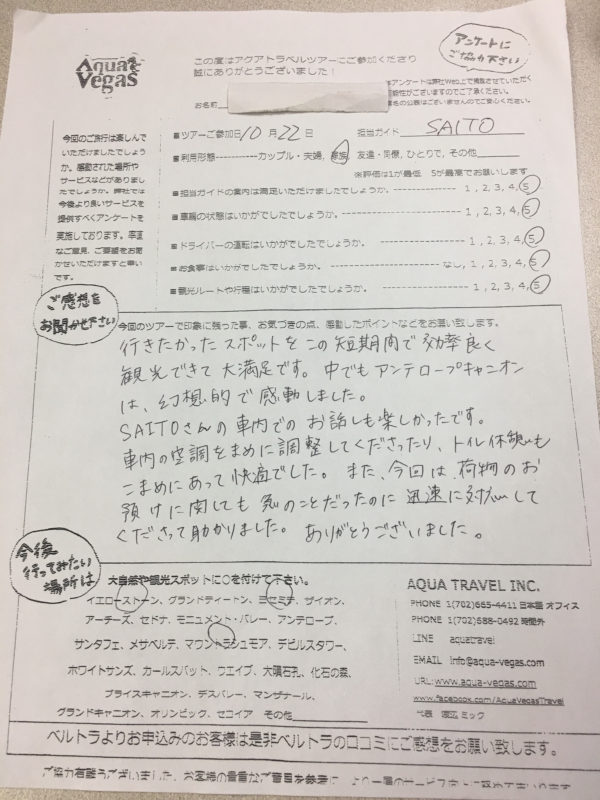 Aqua Vegas
この度はアクアトラベルツアーにご参加くださり
誠にありがとうございました！
アンケートに
ご協力下さい
アンケートは弊社Web上で掲載させていただく
可能性がございますのでご了承ください。
名の公表はございませんのでご安心ください。
お名前
今回のご旅行は楽しんで
いただけましたでしょう
か。感動された場所や
サービスなどがありまし
たでしょうか。弊社では
今後より良いサービスを
提供すべくアンケートを
実施しております。率直
なご意見、ご要望をお聞
かせいただけますと幸い
です。
■ツアーご参加日 10 月 22 日 担当ガイド SAITO
■利用形態-----------カップル・夫婦, 家族, 友達・同僚, ひとりで, その他
※評価は1が最低 5が最高でお願いします
■担当ガイドの案内は満足いただけましたでしょうか。 1, 2, 3, 4, 5
■車輛の状態はいかがでしたでしょうか。 1, 2, 3, 4, 5
■ドライバーの運転はいかがでしたでしょうか。 1, 2, 3, 4, 5
■お食事はいかがでしたでしょうか。 なし, 1, 2, 3, 4, 5
■観光ルートや行程はいかがでしたでしょうか。 1, 2, 3, 4, 5
ご感想を
お聞かせ下さい
今回のツアーで印象に残った事、お気づきの点、感動したポイントなどをお願い致します。
行きたかったスポットをこの短期間で効率良く
観光できて大満足です。中でもアンテロープキャニオン
は、幻想的で感動しました。
SAITOさんの車内でのお話しも楽しかったです。
車内の空調をまめに調整してくださったり、トイレ休憩も
こまめにあって快適でした。また、今回は、荷物のお
預けに関しても急のことだったのに迅速に対応して
くださって助かりました。ありがとうございました。
今後
行ってみたい
場所は
大自然や観光スポットに○を付けて下さい。
イエローストーン、グランドティートン、ヨセミテ、ザイオン、
アーチーズ、セドナ、モニュメント・バレー、アンテロープ、
サンタフェ、メサベルテ、マウントラシュモア、デビルスタワー、
ホワイトサンズ、カールスバット、ウエイブ、大隕石孔、化石の森、
ブライスキャニオン、デスバレー、マンザナール、
グランドキャニオン、オリンピック、セコイア その他
AQUA TRAVEL INC.
PHONE 1(702)665-4411 日本語 オフィス
PHONE 1(702)688-0492 時間外
LINE aquatravel
EMAIL info@aqua-vegas.com
URL: www.aqua-vegas.com
www.facebook.com/AquaVegasTravel
代表 渡辺 ミック
ベルトラよりお申込みのお客様は是非ベルトラの口コミにご感想をお願い致します。
ご協力有難うございました。お客様の貴重なご意見を参考に、より一層のサービス向上に努めてまいります